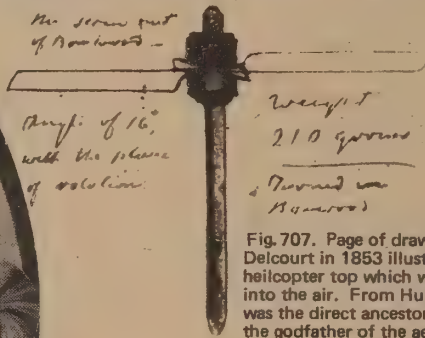 The screw cut
of Boxwood –
Angle of 16°,
with the plane
of rotation
Weight
210 grains
Turned in
Boxwood
Fig. 707. Page of draw
Delcourt in 1853 illust
heilcopter top which w
into the air. From Hu
was the direct ancestor
the godfather of the ae